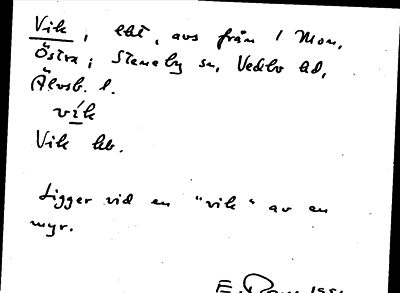 Vik, lht, avs från 1 Mon,
Östra; Steneby sn, Vedbo hd,
Älvsb. l.
vík
Vik hb.
Ligger vid en "vik" av en
myr.
E.